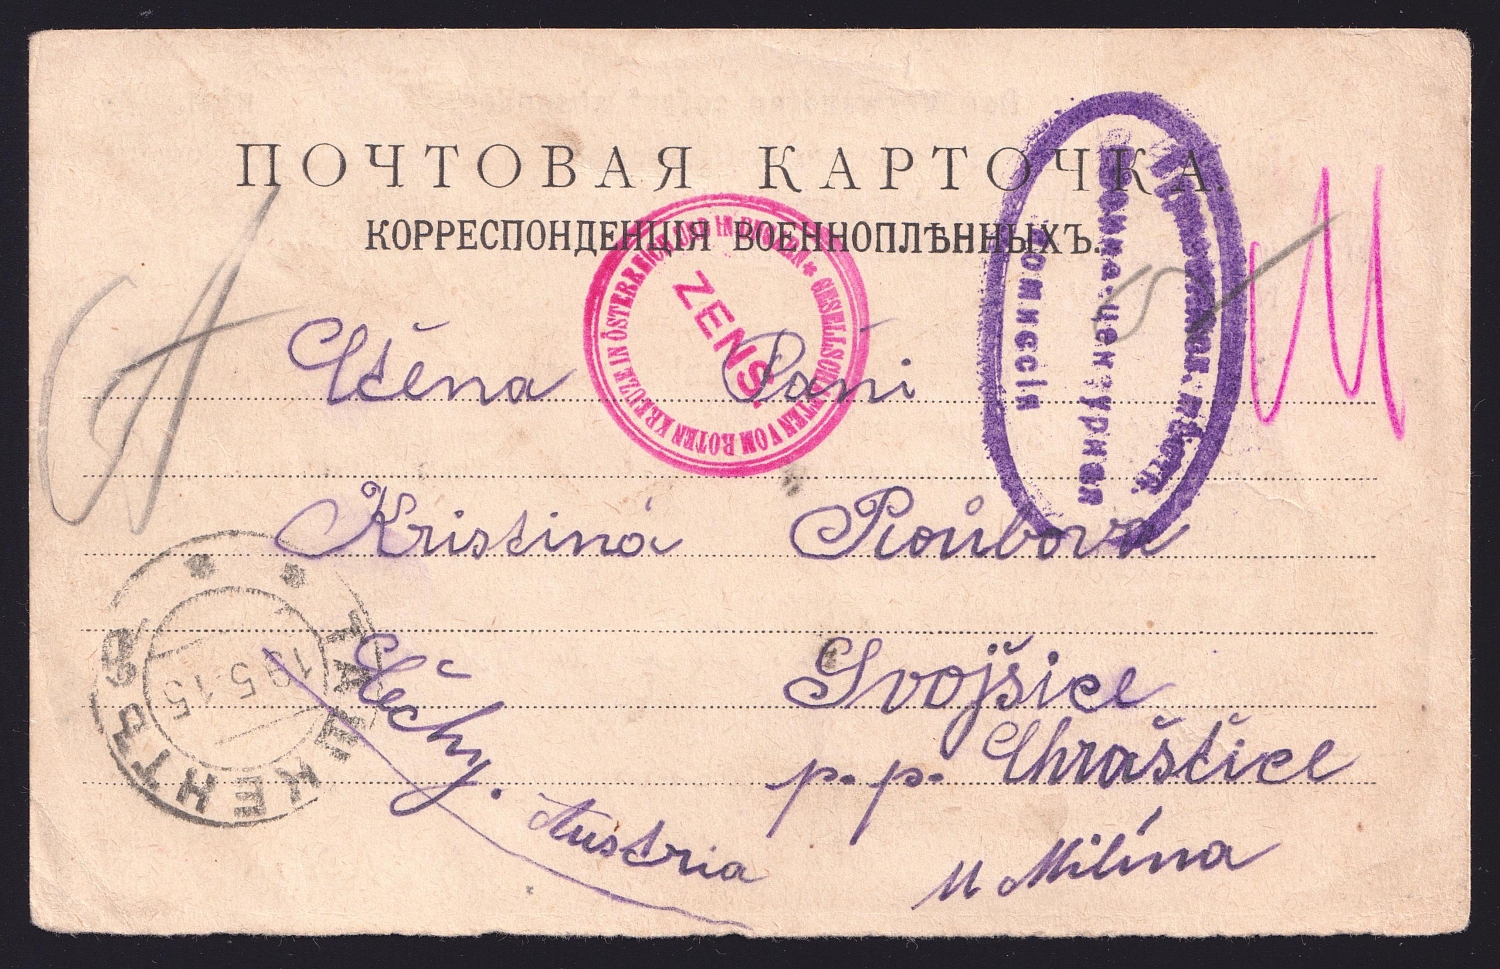 ПОЧТОВАЯ КАРТОЧКА.
КОРРЕСПОНДЕНЦІЯ ВОЕННОПЛѢННЫХЪ.
GESELLSCHAFTEN VOM ROTEN KREUZE IN ÖSTERREICH UND IN UNGARN *
ZENS.
военно-цензурная
комиссія
Ctěna Páni
Kristina Roubova
Svojšice
p. p. Chraštice
u Milína
Čechy.
Austria
ТАШКЕНТЪ
19 5 15